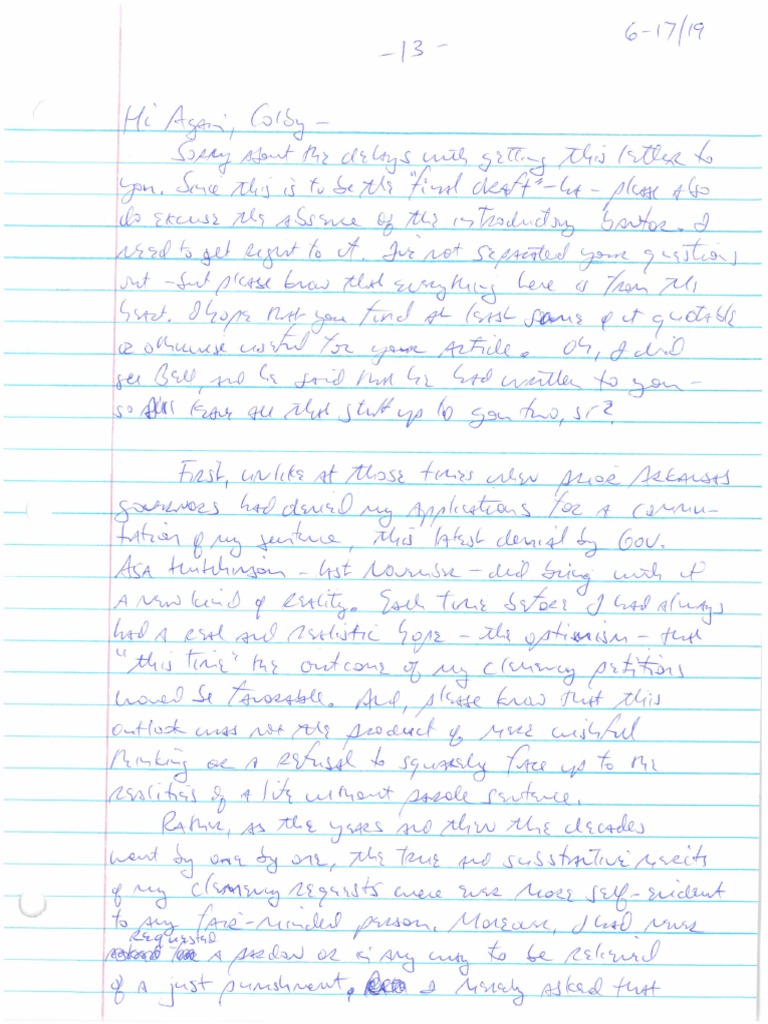 6-17/19
-13-
Hi Again, Colby -
Sorry about the delays with getting this letter to
you. Since this is to be the "final draft" - ha - please also
do excuse the absence of the introductory banter. I
need to get right to it. I've not separated your questions
out - but please know that everything here is from the
heart. I hope that you find at least some of it quotable
or otherwise useful for your article. Oh, I did
see Bell, and he said that he had written to you -
so I'll leave all that stuff up to you two, sí?
First, unlike at those times when prior Arkansas
governors had denied my applications for a commu-
tation of my sentence, this latest denial by Gov.
Asa Hutchinson - last November - did bring with it
a new kind of reality. Each time before I had always
had a real and realistic hope - the optimism - that
"this time" the outcome of my clemency petitions
would be favorable. And, please know that this
outlook was not the product of mere wishful
thinking or a refusal to squarely face up to the
realities of a life without parole sentence.
Rather, as the years and then the decades
went by one by one, the true and substantive merits
of my clemency requests were ever more self-evident
to any fair-minded person. Moreover, I had never
requested
a pardon or in any way to be relieved
of a just punishment. I merely asked that